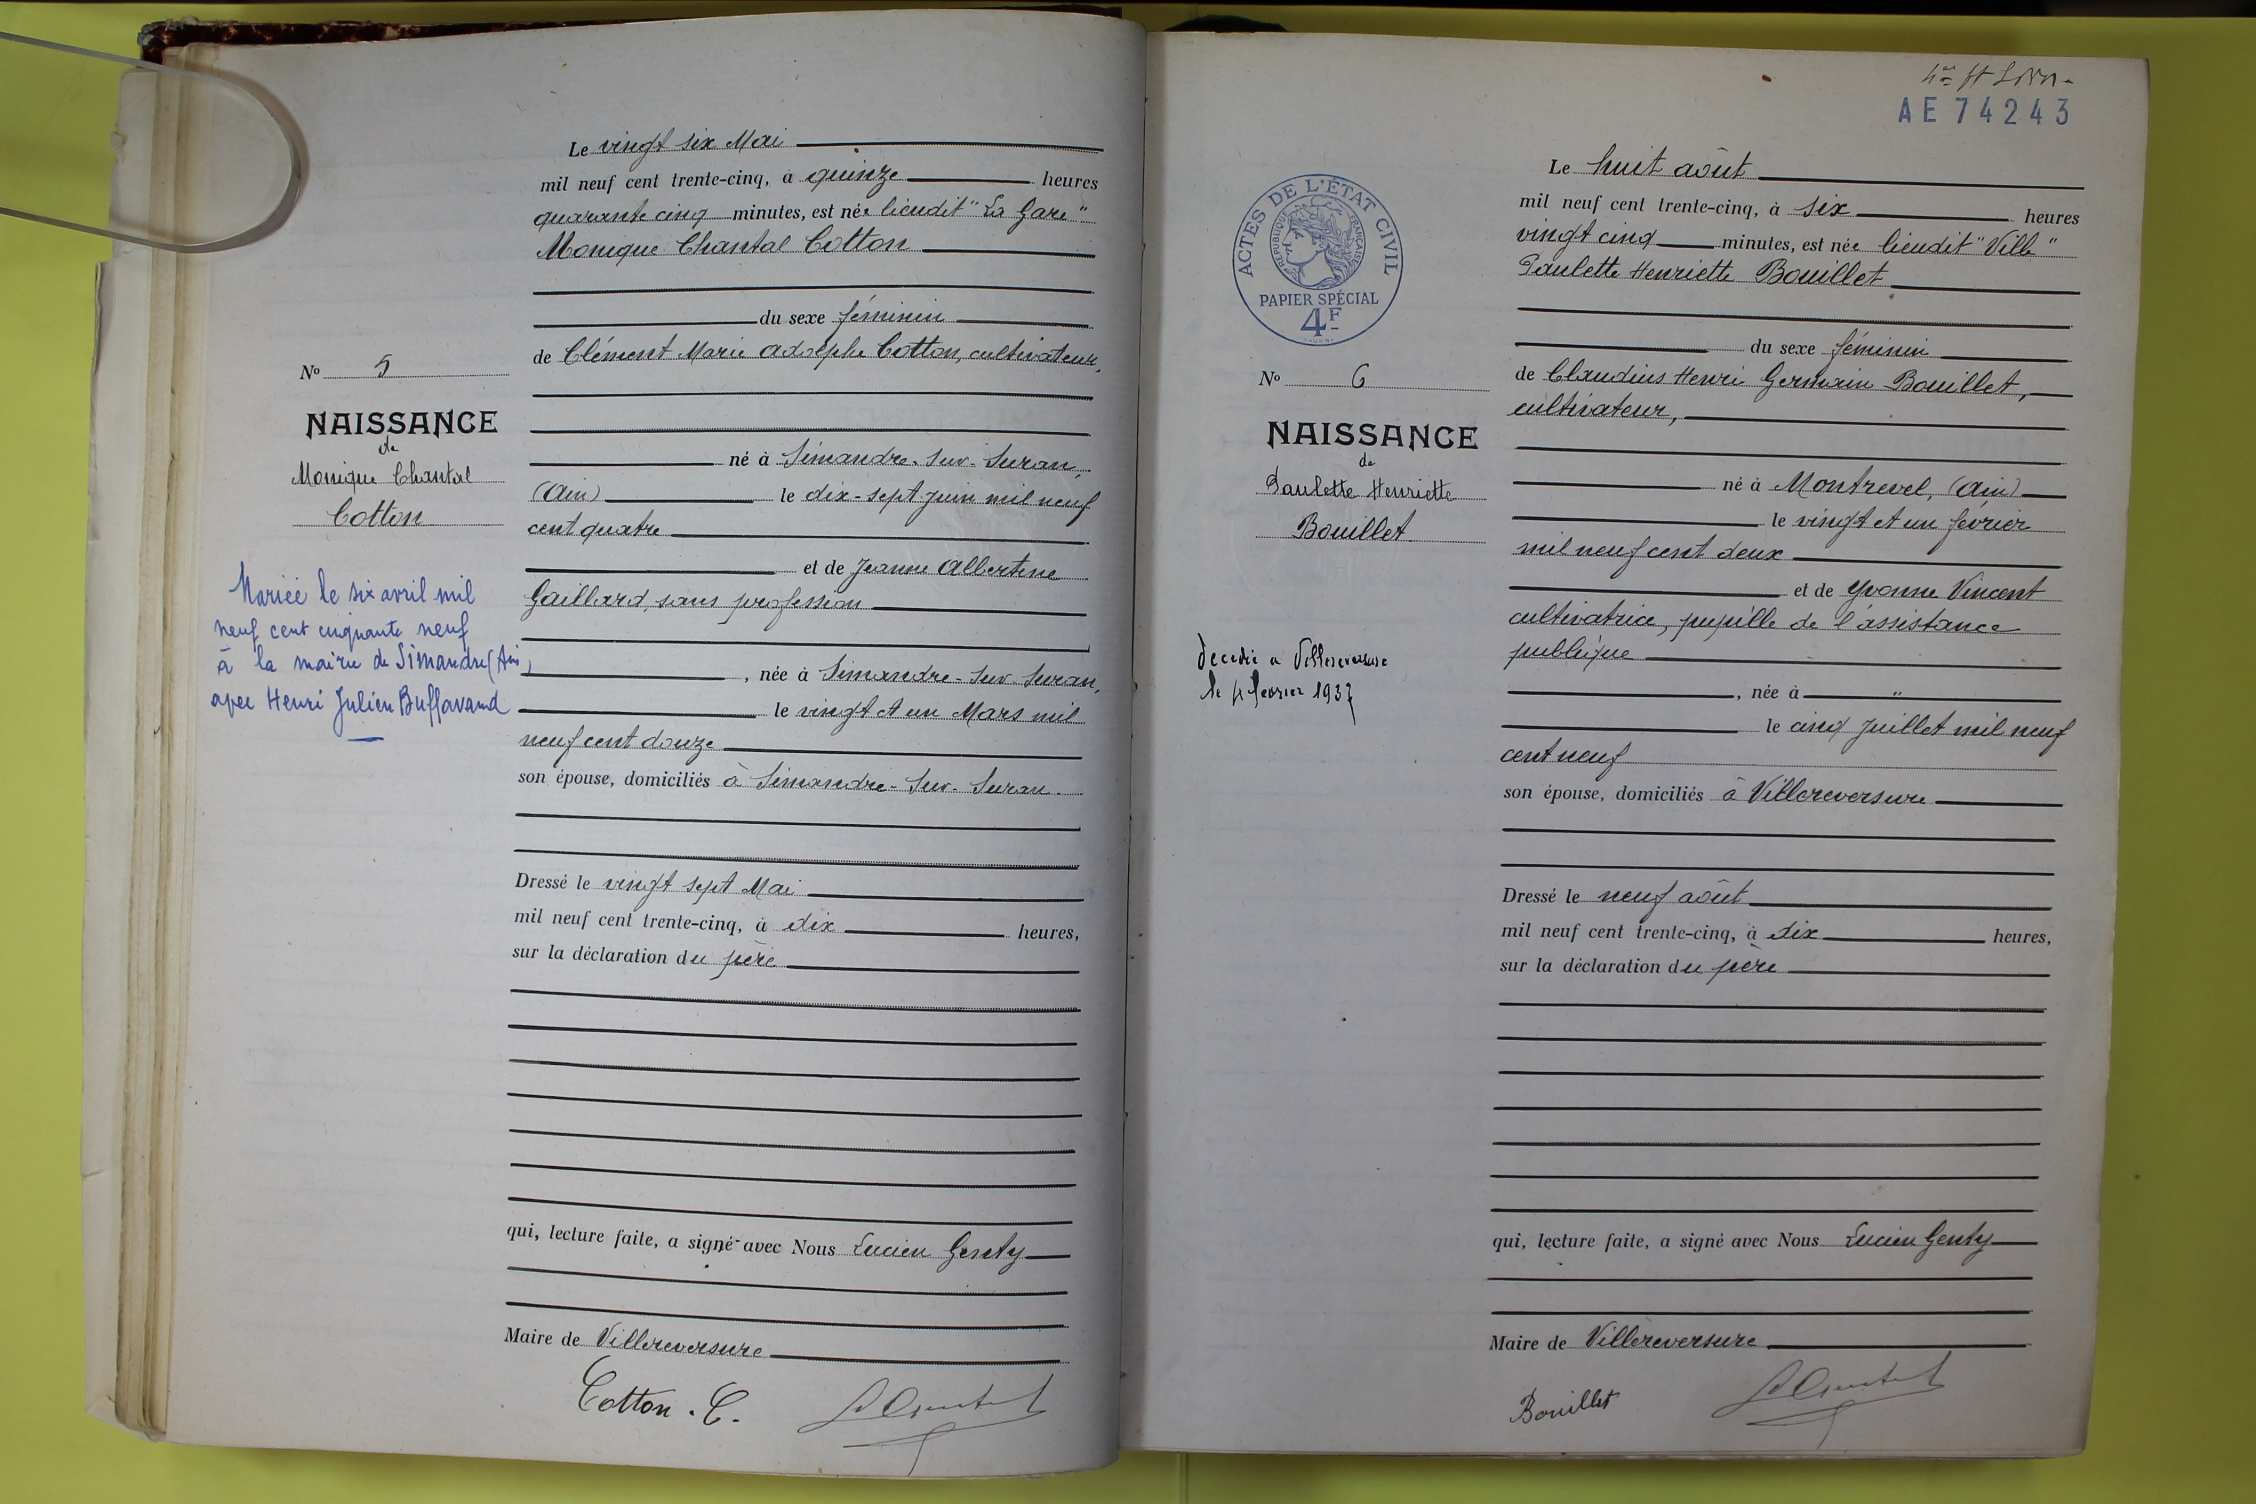 Le vingt six Mai
mil neuf cent trente-cinq, à quinze heures
quarante cinq minutes, est née lieudit "La Gare"
Monique Chantal Cotton
du sexe féminin
de Clément Marie Adolphe Cotton, cultivateur,
né à Simandre-sur-Suran,
(Ain) le dix-sept Juin mil neuf
cent quatre
et de Jeanne Albertine
Gaillard, sans profession
, née à Simandre-sur-Suran,
le vingt et un Mars mil
neuf cent douze
son épouse, domiciliés à Simandre-sur-Suran.
Dressé le vingt sept Mai
mil neuf cent trente-cinq, à dix heures,
sur la déclaration du père
qui, lecture faite, a signé avec Nous Lucien Genty
Maire de Villereversure
Cotton. C.
No 5
NAISSANCE
de
Monique Chantal
Cotton
Mariée le six avril mil
neuf cent cinquante neuf
à la mairie de Simandre (Ain)
avec Henri Julien Buffavand
AE 74243
Le huit août
mil neuf cent trente-cinq, à six heures
vingt cinq minutes, est née lieudit "Ville"
Paulette Henriette Bouillet
du sexe féminin
de Claudius Henri Germain Bouillet,
cultivateur,
né à Montrevel, (Ain)
le vingt et un février
mil neuf cent deux
et de Yvonne Vincent
cultivatrice, pupille de l'assistance
publique
, née à "
le cinq Juillet mil neuf
cent neuf
son épouse, domiciliés à Villereversure
Dressé le neuf août
mil neuf cent trente-cinq, à dix heures,
sur la déclaration du père
qui, lecture faite, a signé avec Nous Lucien Genty
Maire de Villereversure
Bouillet
ACTES DE L'ÉTAT CIVIL
RÉPUBLIQUE FRANÇAISE
PAPIER SPÉCIAL
4F
No 6
NAISSANCE
de
Paulette Henriette
Bouillet
Décédée a Villereversure
le 4 février 1937